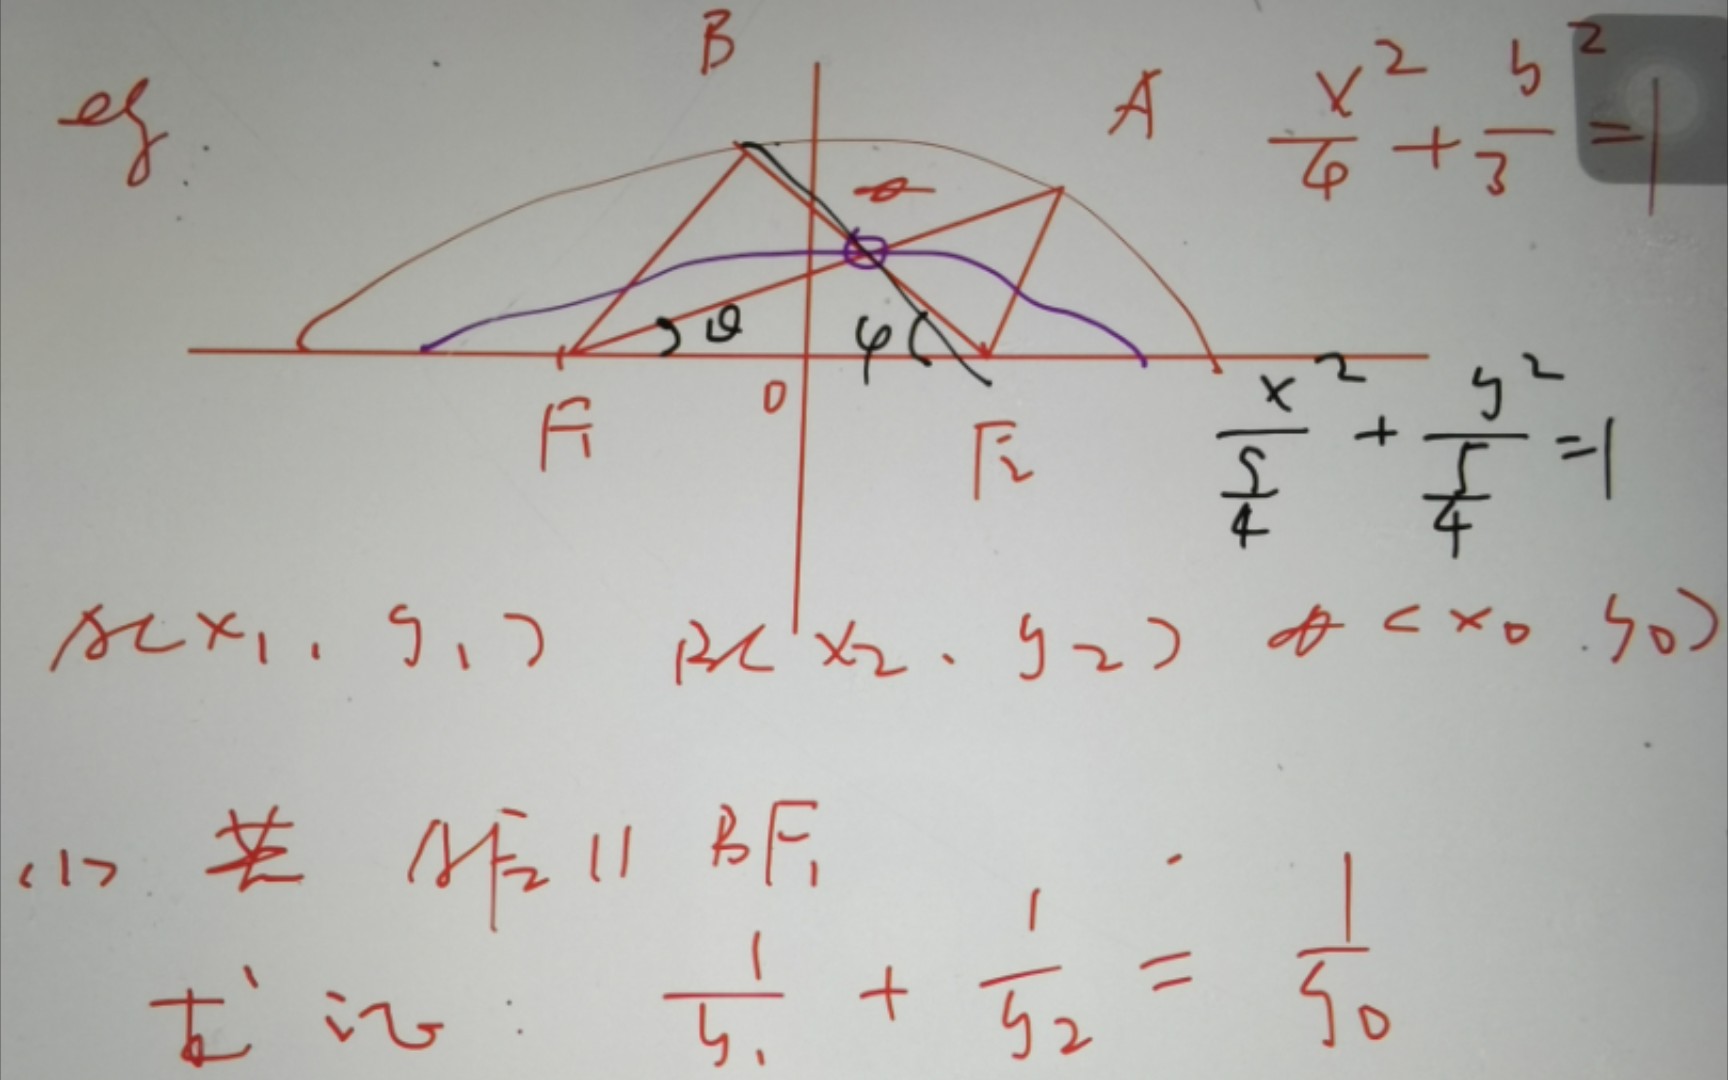 eg.
B
A
x²/4 + y²/3 = 1
θ
φ
F₁
O
F₂
x²/(5/4) + y²/(5/4) = 1
A(x₁, y₁) B(x₂, y₂) (x₀, y₀)
(1) 若 AF₂ // BF₁
求证: 1/y₁ + 1/y₂ = 1/y₀